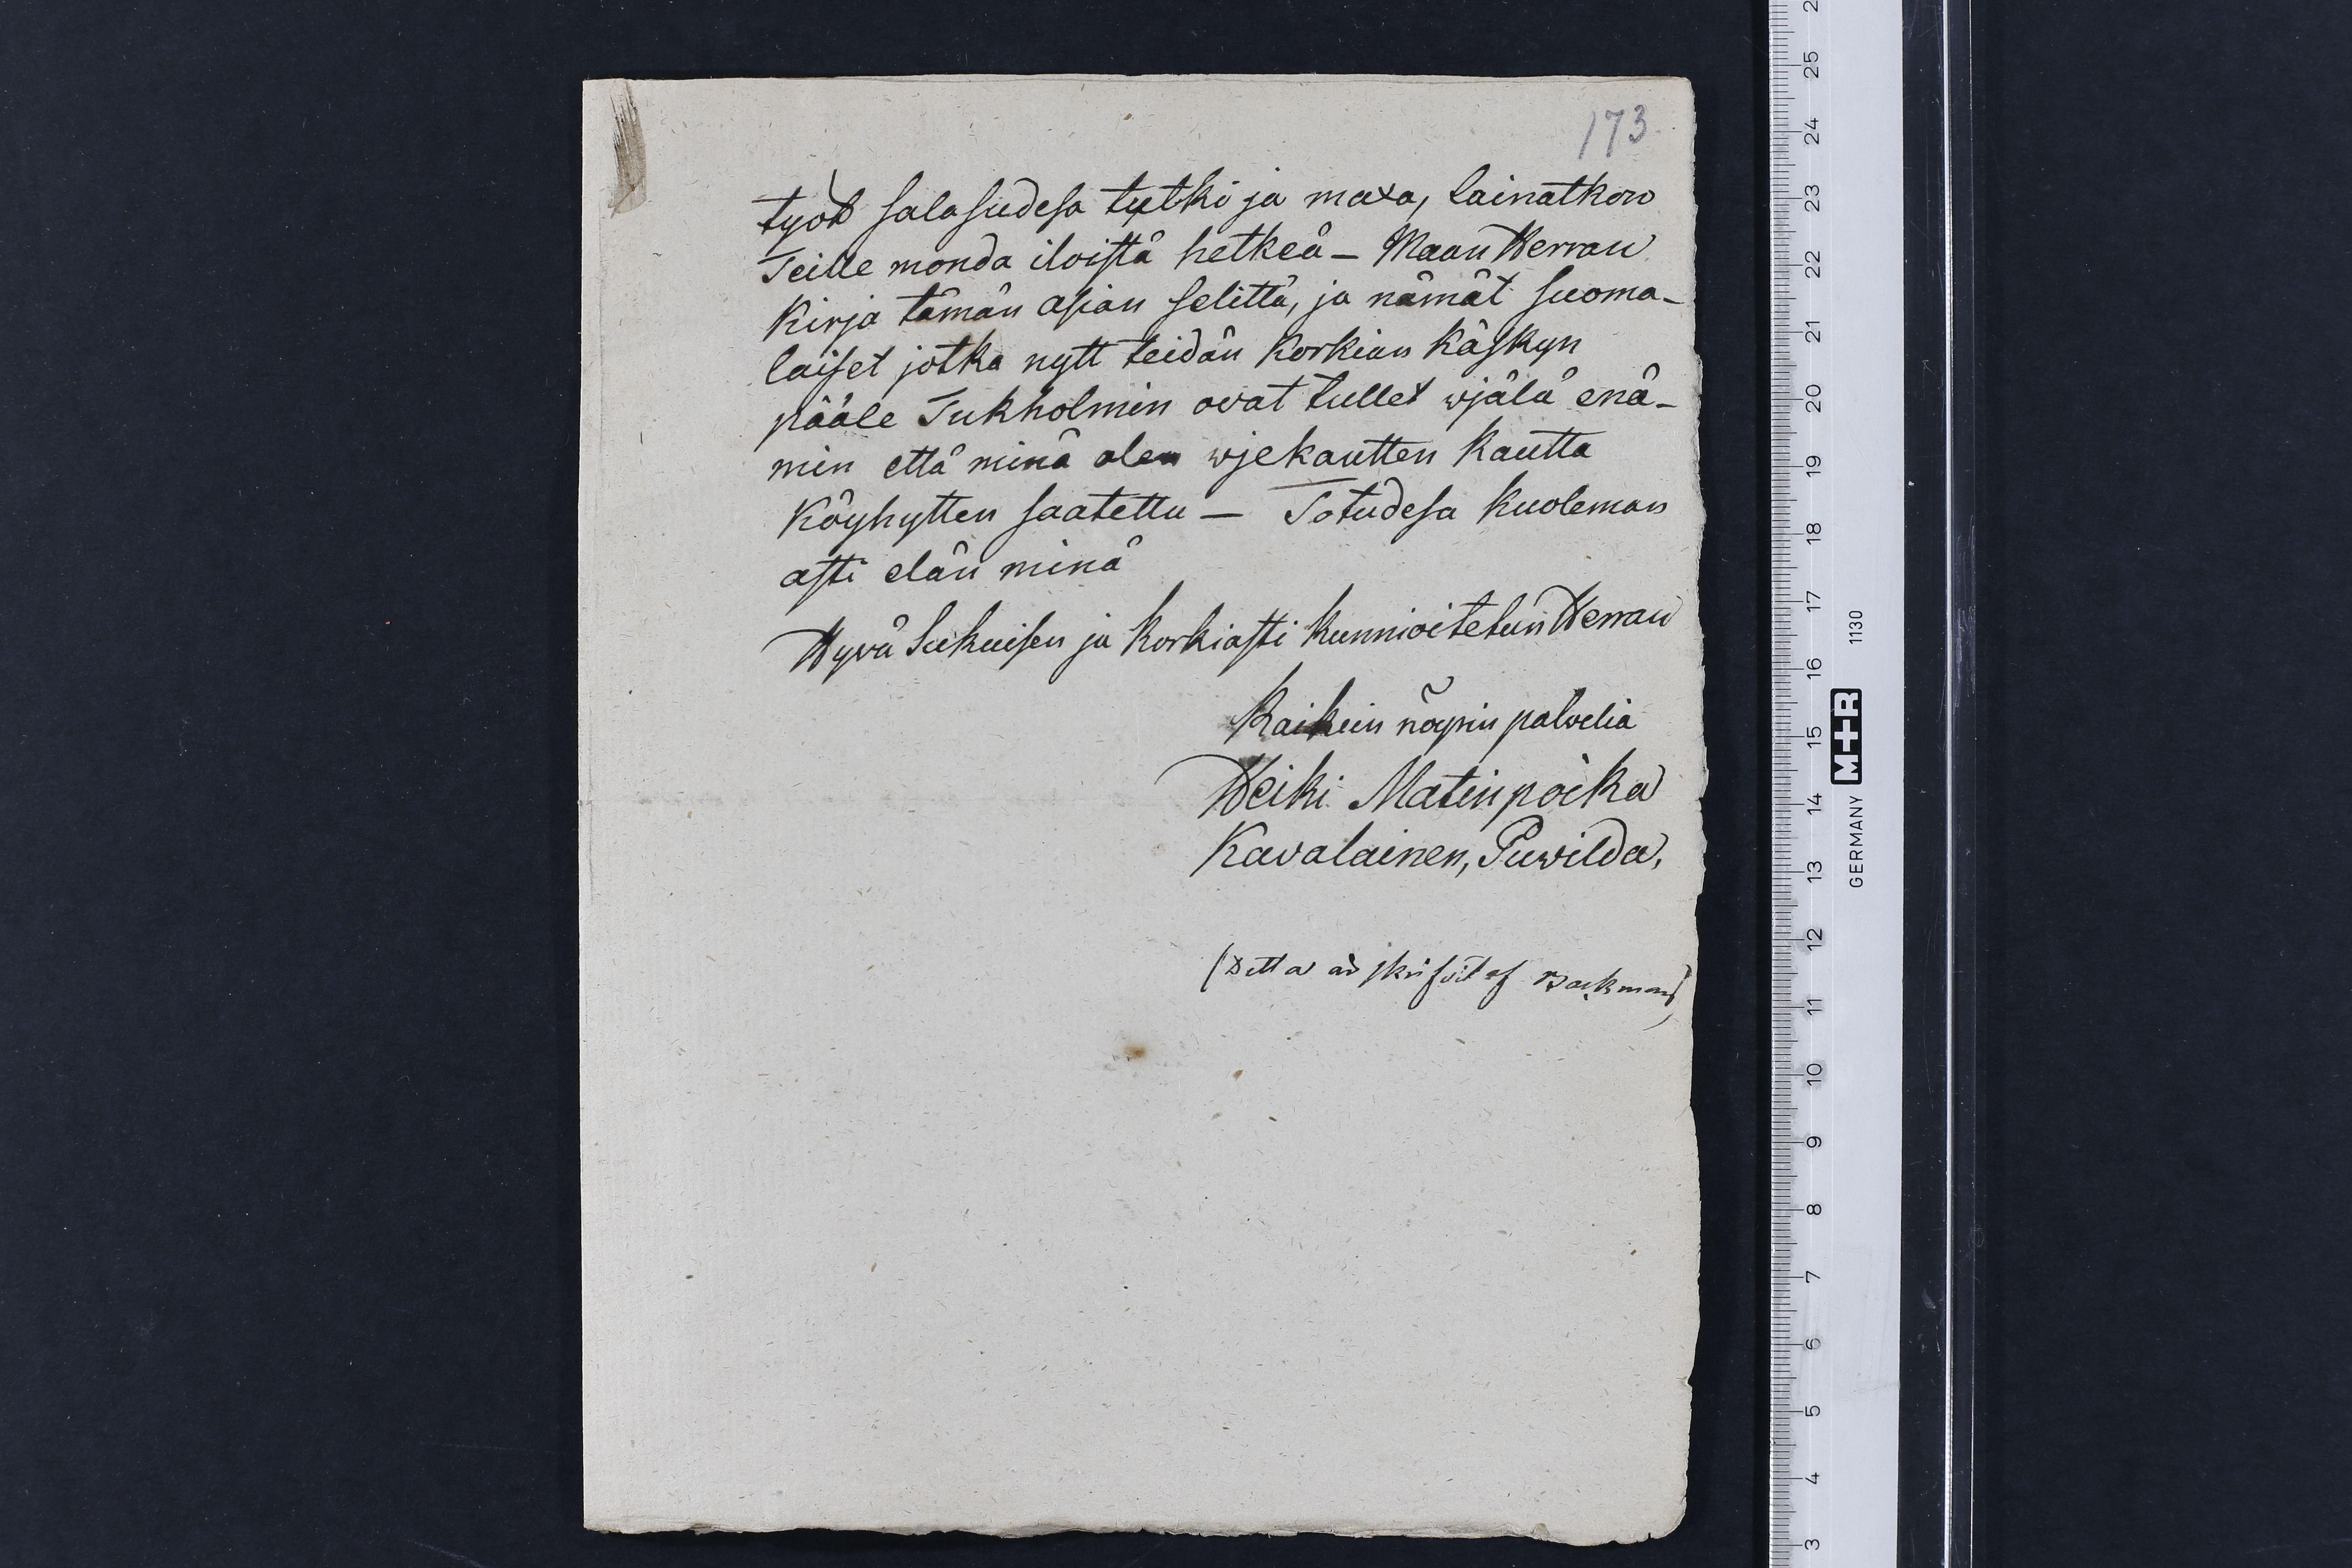 173
työt salasudesa tutki ja maxa, lainatkon
Teille monda iloistä hetkeä – Maan Herran
Kirja tämän asian selittä, ja nämät suoma-
laiset jotka nytt teidän Korkian Käskyn
pääle Tukholmin ovat tullet wjälä enä-
min että minä olen wjekautten Kautta
Köyhytten saatettu – Totudesa Kuoleman
asti elän minä
Hyvä Sukuisen ja Korkiasti Kunnioitetun Herran
Kaikein nöyrin palvelia
Heiki Matinpoika
Kavalainen, Puwilda,
(Detta är skrifvit af Backman)
2
25
24
23
22
21
20
19
18
17
16
15
14
13
12
11
10
9
8
7
6
5
4
3
GERMANY M+R 1130